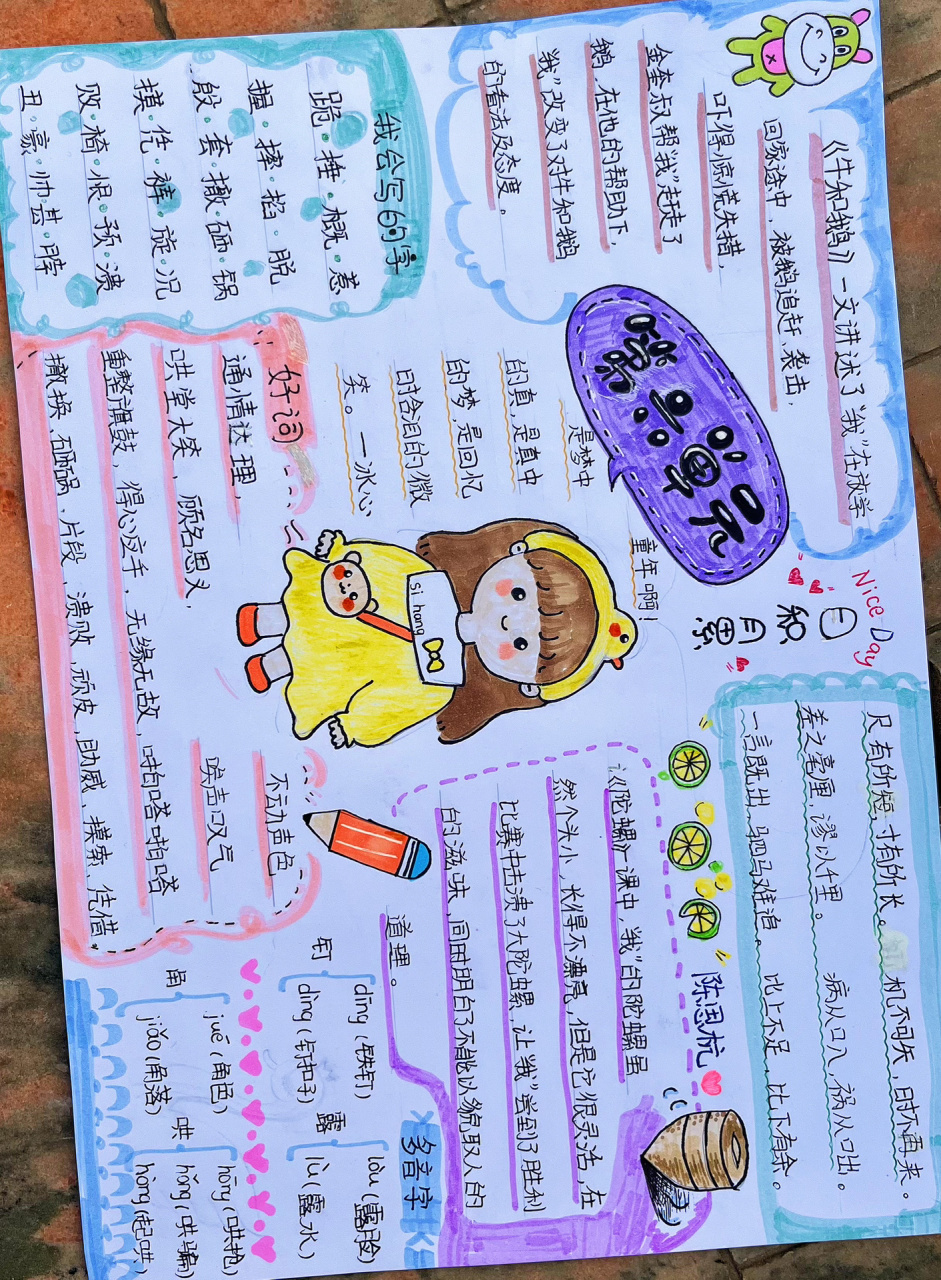 《牛和鹅》一文讲述了“我”在放学
回家途中，被鹅追赶、袭击，
吓得惊慌失措，
金奎叔帮“我”赶走了
鹅，在他的帮助下，
“我”改变了对牛和鹅
的看法及态度。
第六单元
Nice Day
日积月累
尺有所短，寸有所长。 机不可失，时不再来。
差之毫厘，谬以千里。 病从口入，祸从口出。
一言既出，驷马难追。 比上不足，比下有余。
陈思杭
童年啊！
是梦中
的真，是真中
的梦，是回忆
时含泪的微
笑。—冰心
si hang
《陀螺》一课中，“我”的陀螺虽
然个头小，长得不漂亮，但是它很灵活，在
比赛中击溃了大陀螺，让“我”尝到了胜利
的滋味，同时明白了不能以貌取人的
道理。
我会写的字
跪·捶·概·惹
握·摔·掐·脱
段·套·撤·砸·锅
摸·凭·裤·旋·况
败·椅·恨·预·溃
丑·豪·帅·甚·脖
好词
通情达理，
哄堂大笑，顾名思义，
重整旗鼓，得心应手，无缘无故，啪嗒啪嗒
撤换，砸锅，片段，溃败，顽皮，助威，摸索，凭借，
不动声色
唉声叹气
多音字
钉
dīng（铁钉）
dìng（钉扣子）
露
lòu（露脸）
lù（露水）
角
jué（角色）
jiǎo（角落）
哄
hōng（哄抢）
hǒng（哄骗）
hòng（起哄）